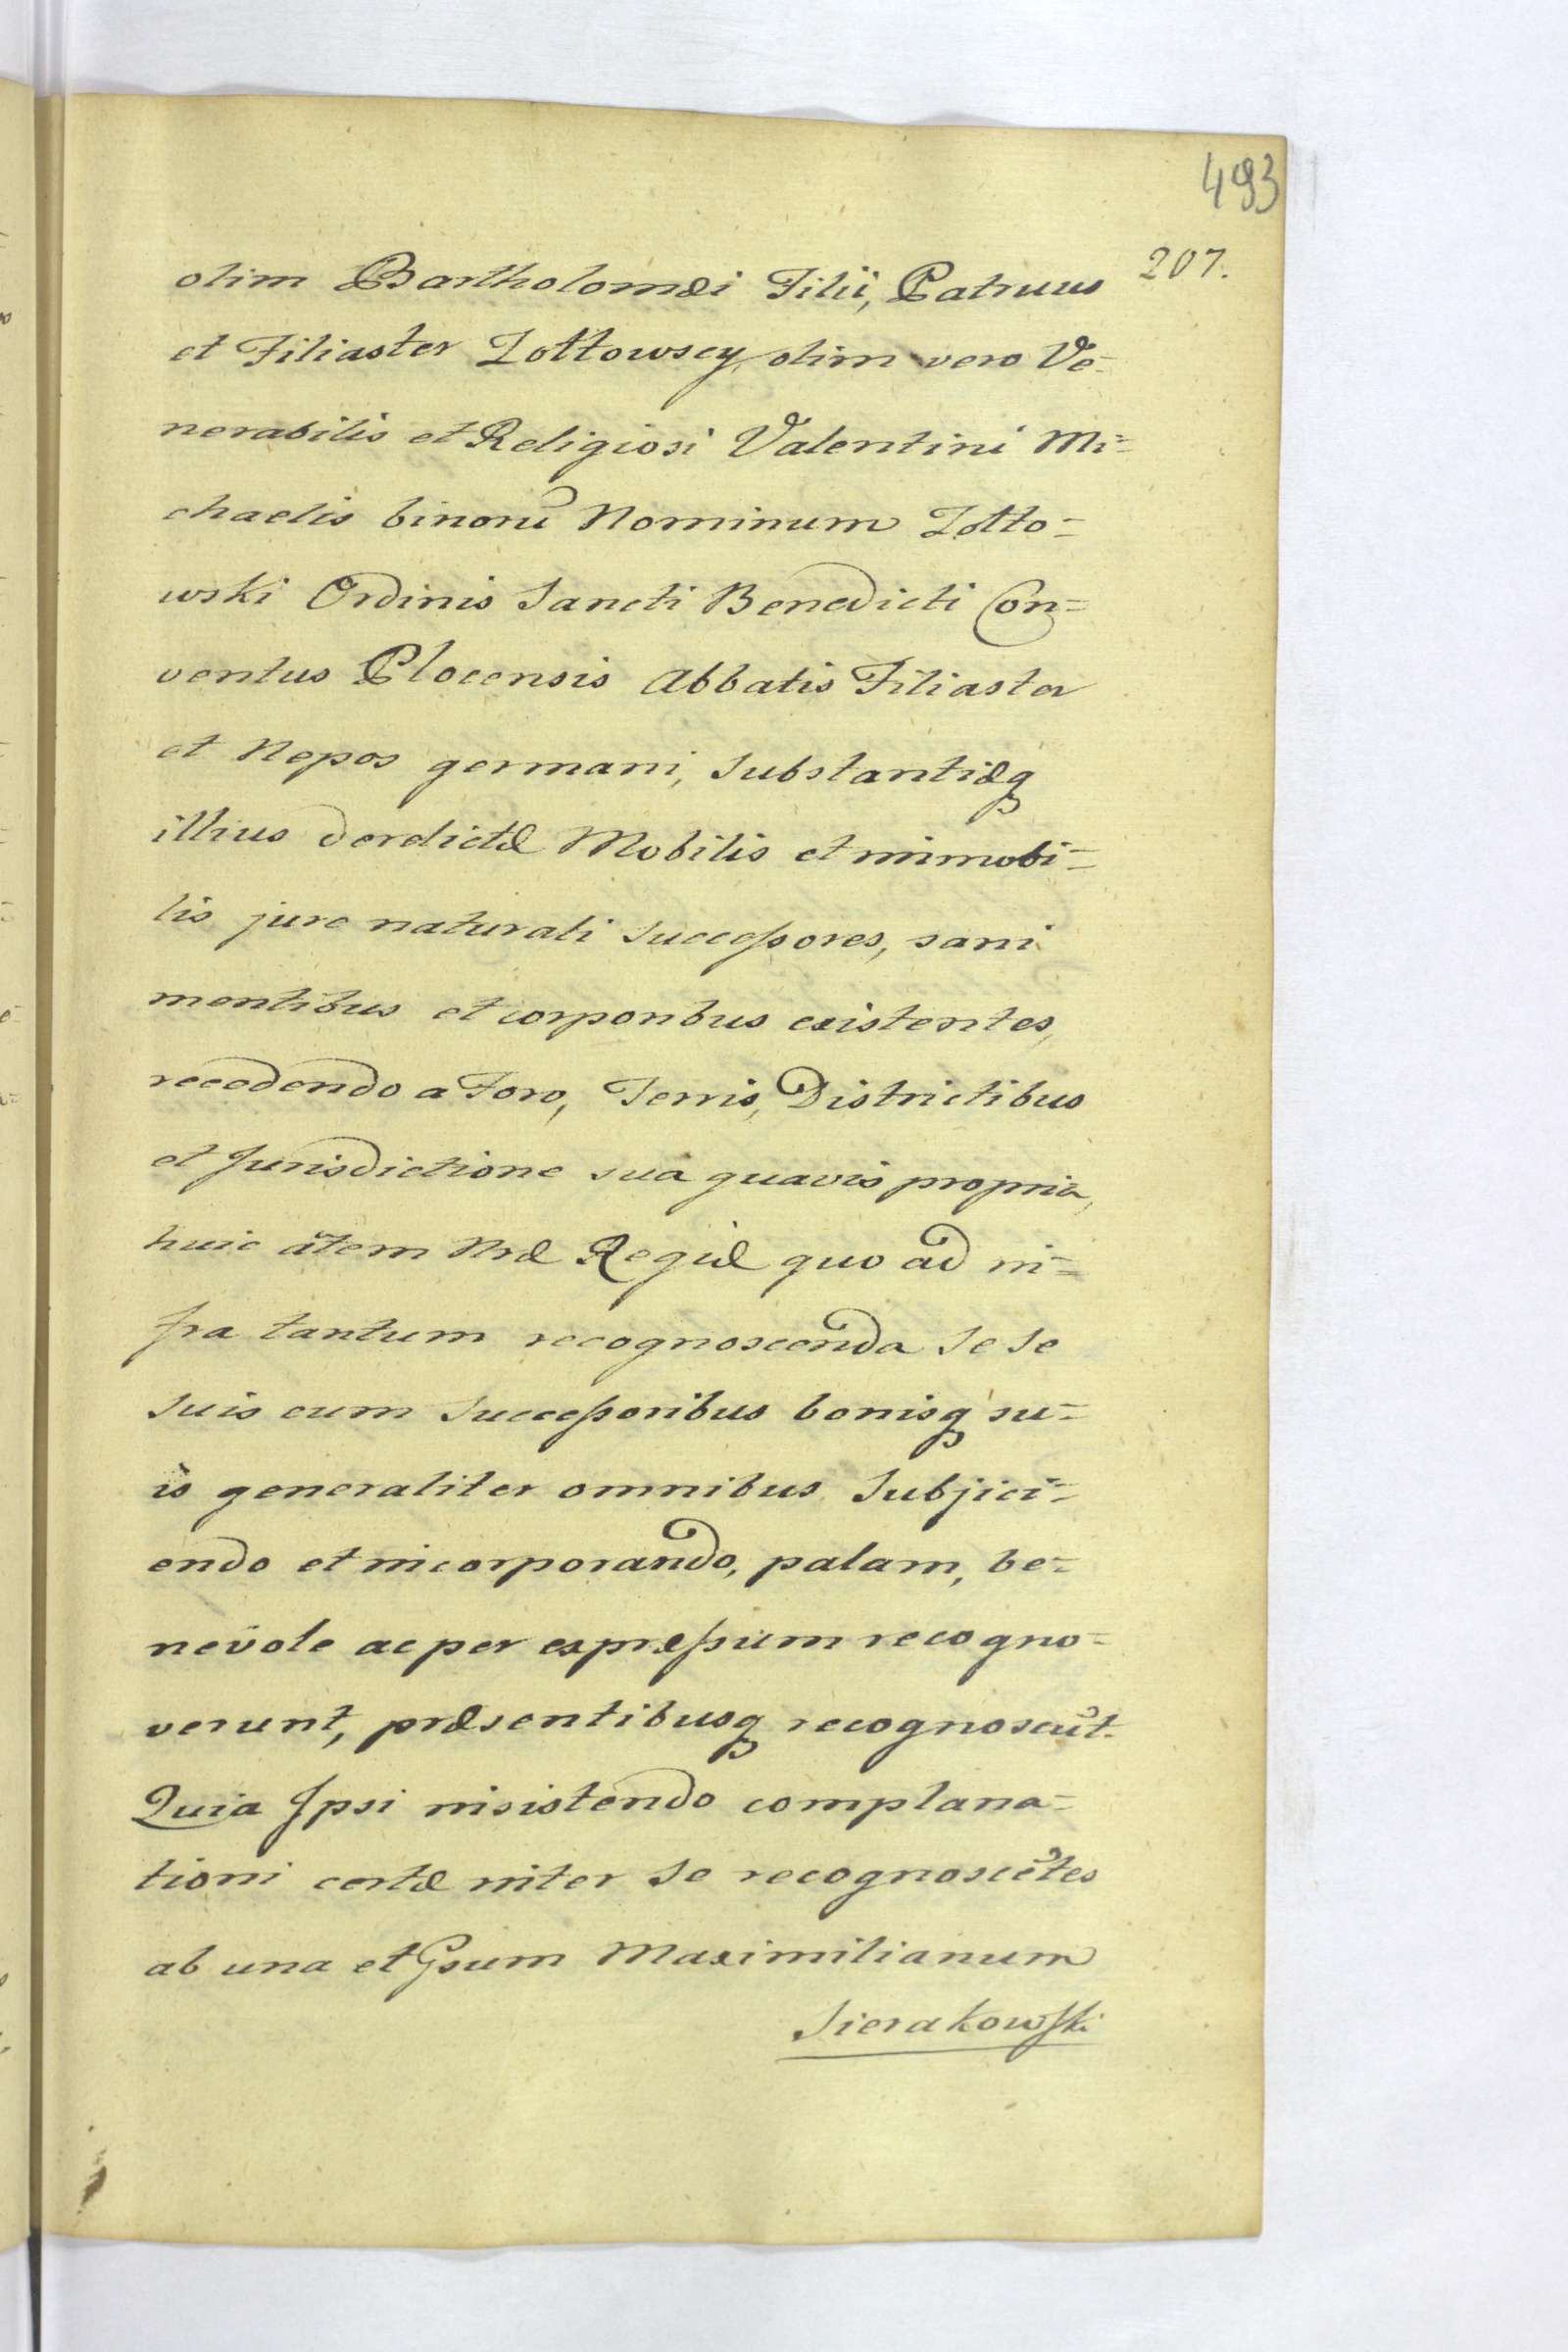 493
207.
olim Bartholomæi Filii, Patruus
et Filiaster Zołtowscy, olim vero Ve=
nerabilis et Religiosi Valentini Mi=
chaelis binorū Nominum Zołto=
wski Ordinis Sancti Benedicti Con=
ventus Plocensis Abbatis Filiaster
et Nepos germani, Substantiæq
illius derelictæ Mobilis et immobi=
lis jure naturali Successores, sani
mentibus et corporibus existentes,
recedendo a Foro, Terris, Districtibus
et Jurisdictione sua quavis propria,
huic aũtem Nræ Regiæ quo ad in=
fra tantum recognoscenda Se Se
Suis cum Successoribus bonisq su=
is generaliter omnibus Subjici=
endo et incorporando, palam, be=
nevole ac per expressum recogno=
verunt, præsentibusq recognoscūt.
Quia Ipsi insistendo complana=
tioni certæ inter Se recognoscētes
ab una et Gsum Maximilianum
Sierakowski